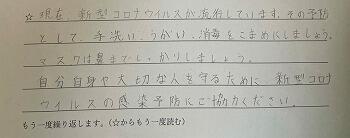 ☆ 現在、新型コロナウイルスが流行しています。その予防
として、手洗い、うがい、消毒をこまめにしましょう。
マスクは鼻までしっかりしましょう。
自分自身や大切な人を守るために、新型コロナ
ウイルスの感染予防にご協力ください。
もう一度繰り返します。(☆からもう一度読む)